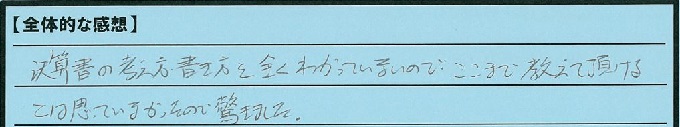 【全体的な感想】
決算書の考え方・書き方を全くわかっていないので、ここまで教えて頂ける
とは思っていなかったので驚きました。